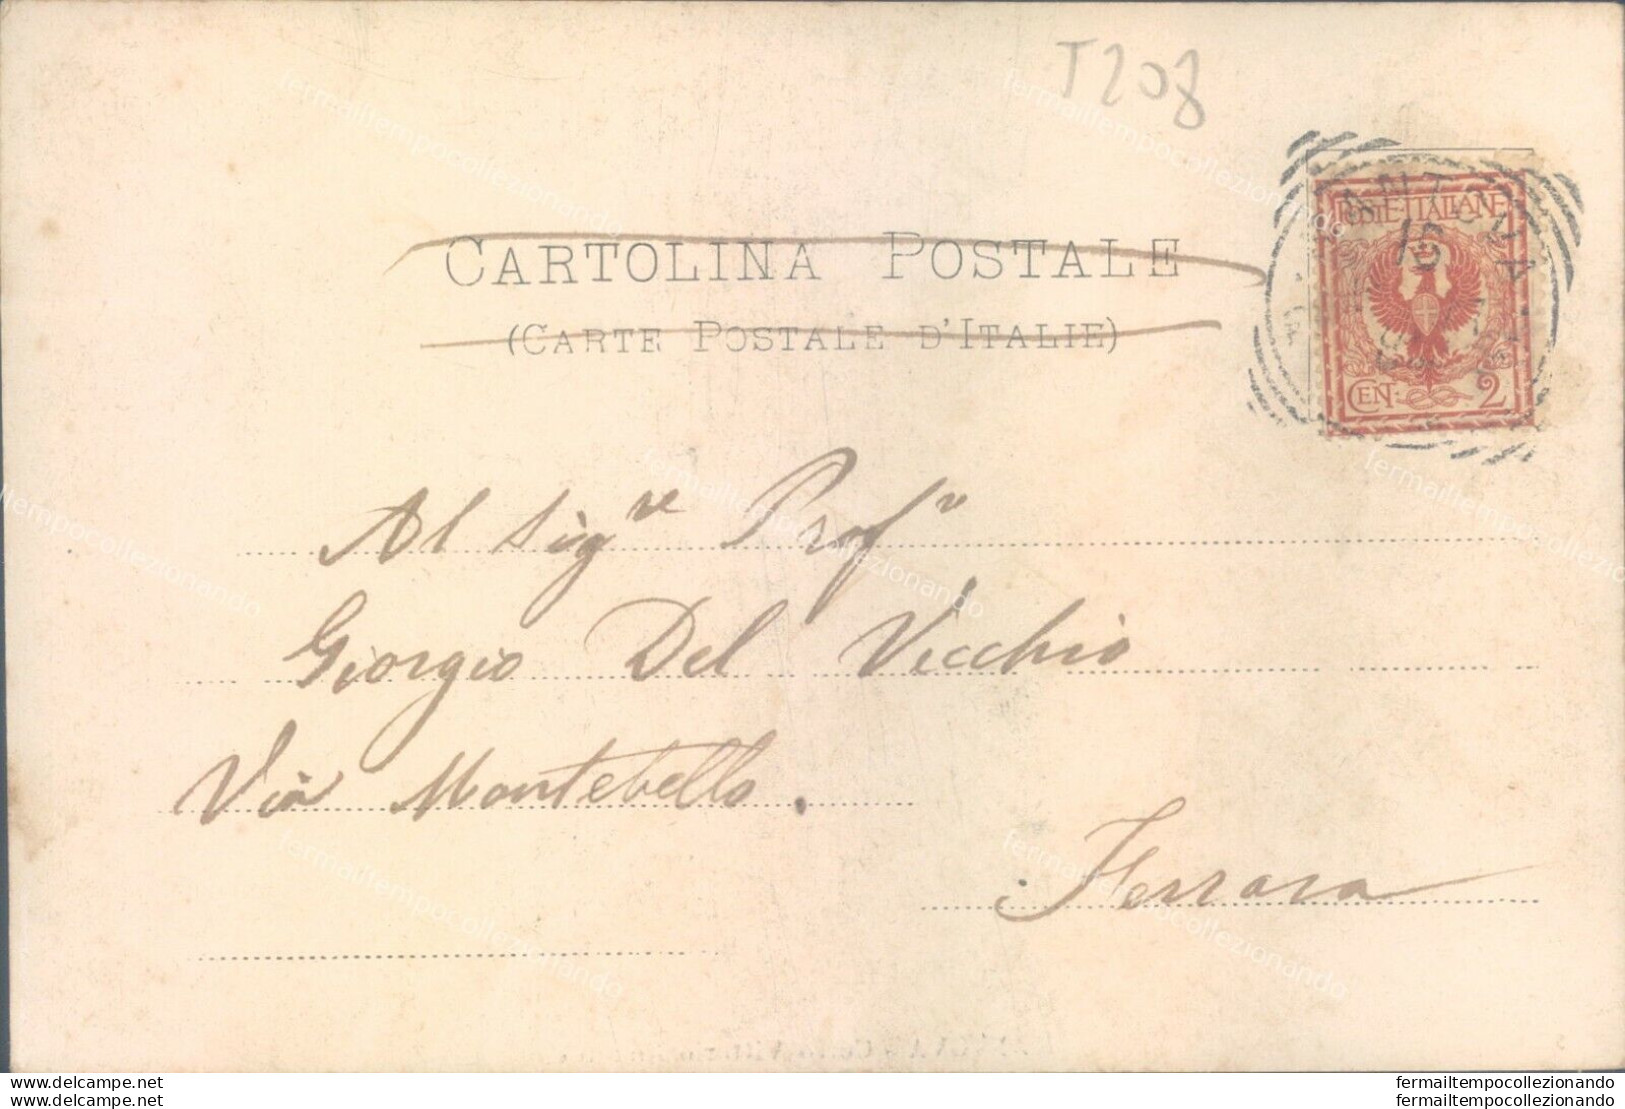 T208
CARTOLINA POSTALE
(CARTE POSTALE D'ITALIE)
POSTE ITALIANE
CEN. 2
Al Sig.re Prof.r
Giorgio Del Vecchio
Via Montebello.
Ferrara
www.delcampe.net
www.delcampe.net
fermailtempocollezionando
fermailtempocollezionando